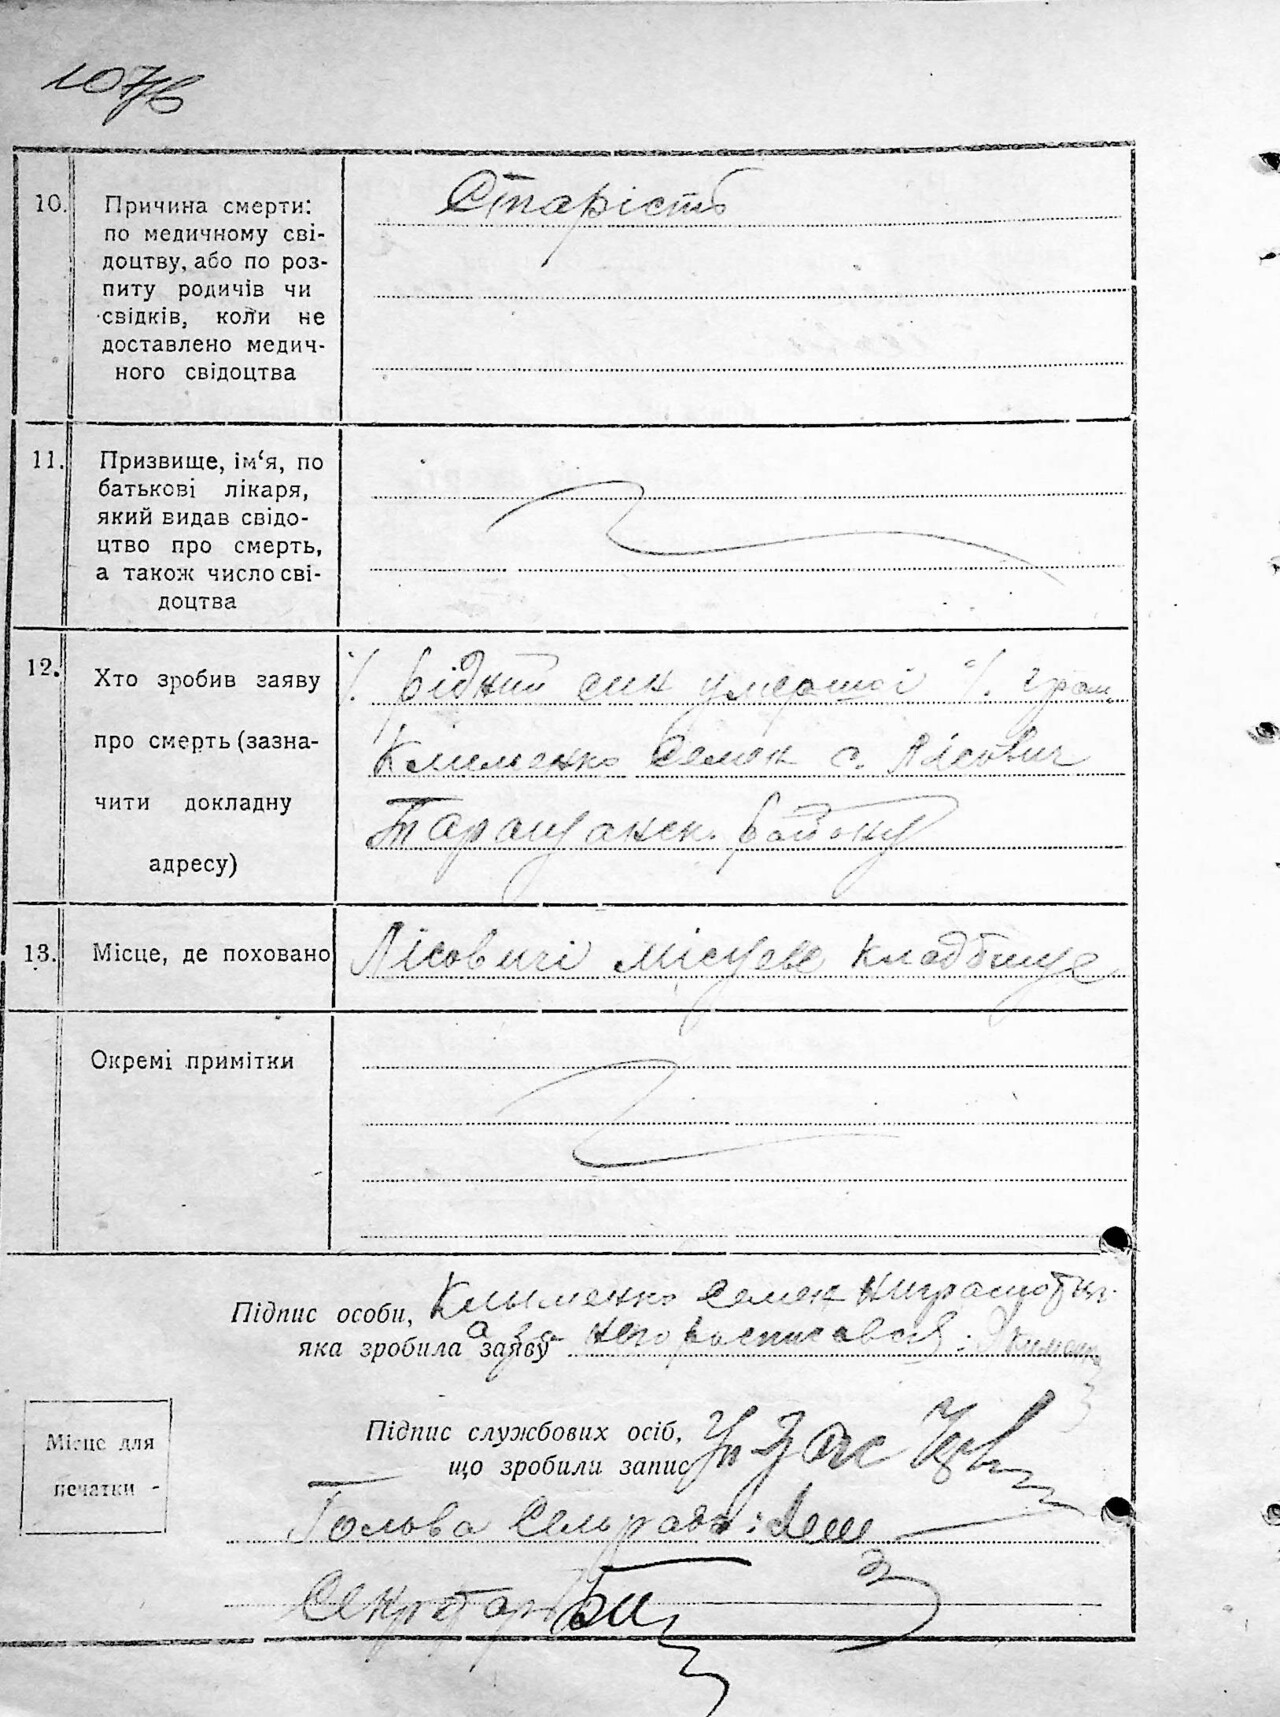 107б
10.
Причина смерти:
по медичному сві-
доцтву, або по роз-
питу родичів чи
свідків, коли не
доставлено медич-
ного свідоцтва
Старість
11.
Призвище, ім‘я, по
батькові лікаря,
який видав свідо-
цтво про смерть,
а також число сві-
доцтва
12.
Хто зробив заяву
про смерть (зазна-
чити докладну
адресу)
рідний син умершої гром.
Клименко Семен с. Лісович
Таращанск. району
13.
Місце, де поховано
Лісовичі місцеве кладбище
Окремі примітки
Підпис особи,
яка зробила заяву
Клыменко Семен
а за него росписавсь:
Підпис службових осіб,
що зробили запис
Місце для
печатки
Голова Сельради:
Секретарь